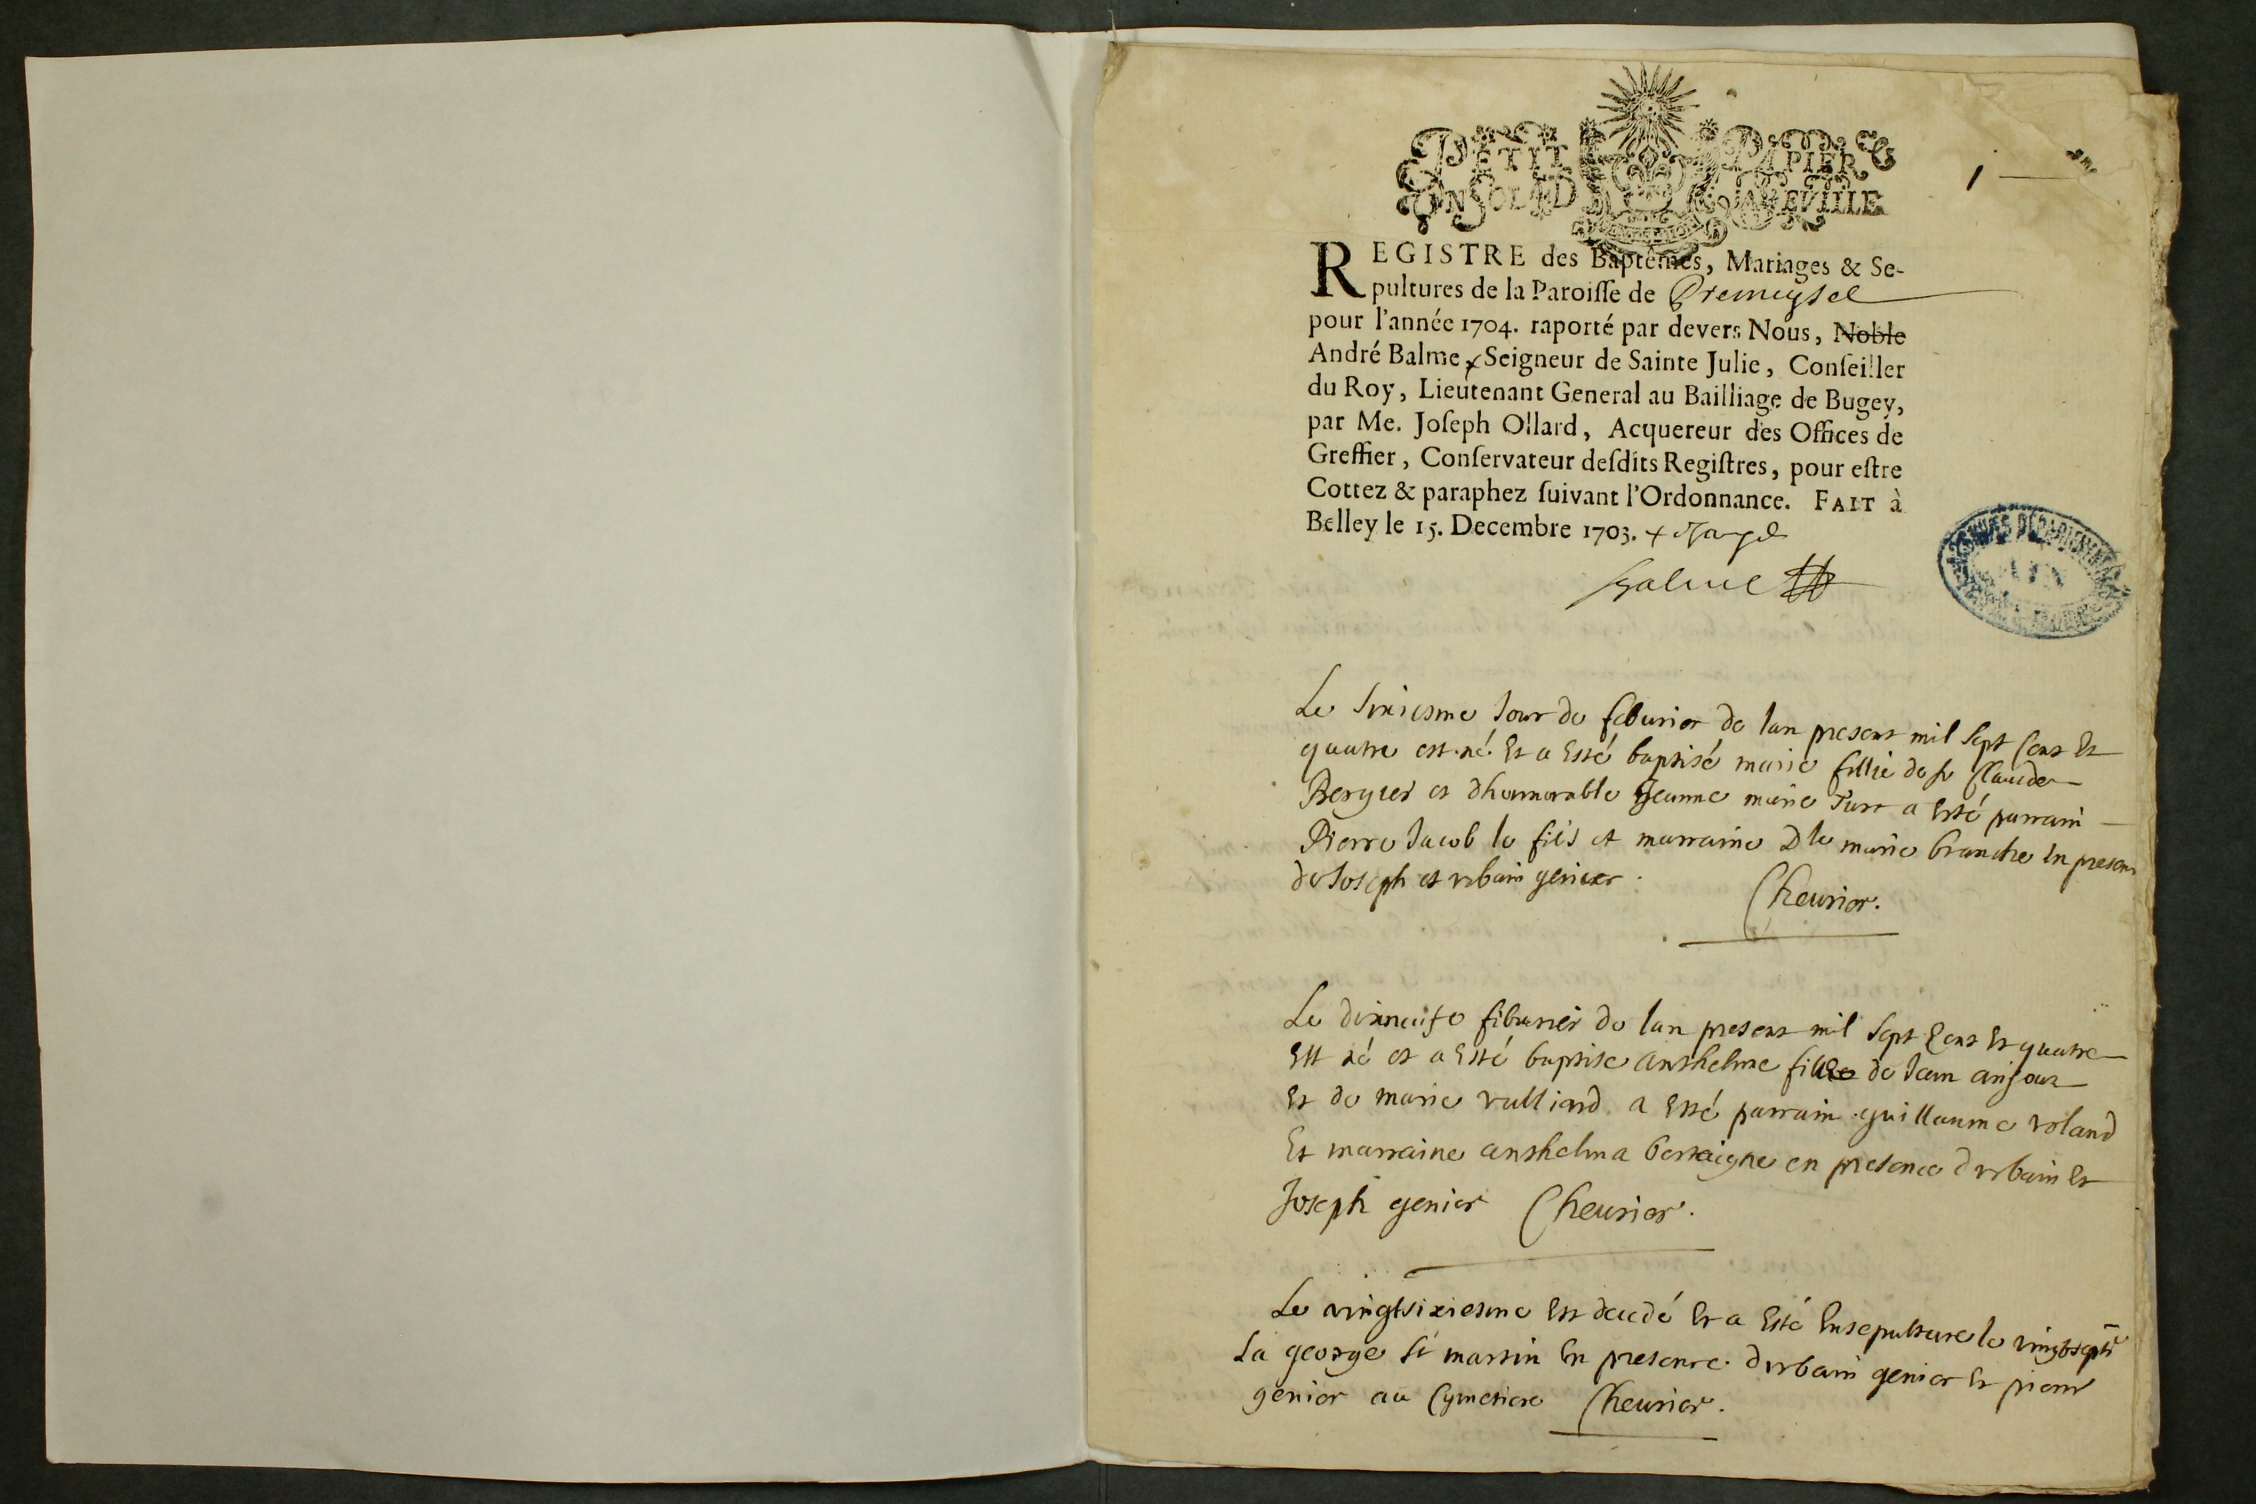 PETIT PAPIER
UN SOL D LA FEVILLE
1
REGISTRE des Baptêmes, Mariages & Se-
pultures de la Paroisse de Premeysel
pour l'année 1704. raporté par devers Nous, Noble
André Balme, Seigneur de Sainte Julie, Conseiller
du Roy, Lieutenant General au Bailliage de Bugey,
par Me. Joseph Ollard, Acquereur des Offices de
Greffier, Conservateur desdits Registres, pour estre
Cottez & paraphez suivant l'Ordonnance. FAIT à
Belley le 15. Decembre 1703.
Balme
Le sixiesme Jour de feburier de lan present mil sept cens Et
quatre est né Et a Esté baptisé marie fillie de sr Claude
Bergier et dhonnorable Jeanne marie a Esté parrain
Pierre Jacob le fils et marraine Dlle marie branche En presen
de Joseph et vrbain genier.
Cheurier.
Le dixneufe feburier de lan present mil sept Cens Et quatre
Est né et a Esté baptise anthelme fille de Jean
Et de marie vulliard a Esté parrain guillaume roland
Et marraine anthelma en presence d vrbain Et
Joseph genier Cheurier.
Le vingtsixiesme Est decedé Et a Esté Ensepulture le vingtsepte
La george St martin En presence dvrbain genier Et pierre
genier au Cymetiere Cheurier.